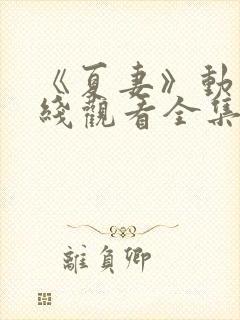 《夏妻》動
綫觀看全集
離負卿